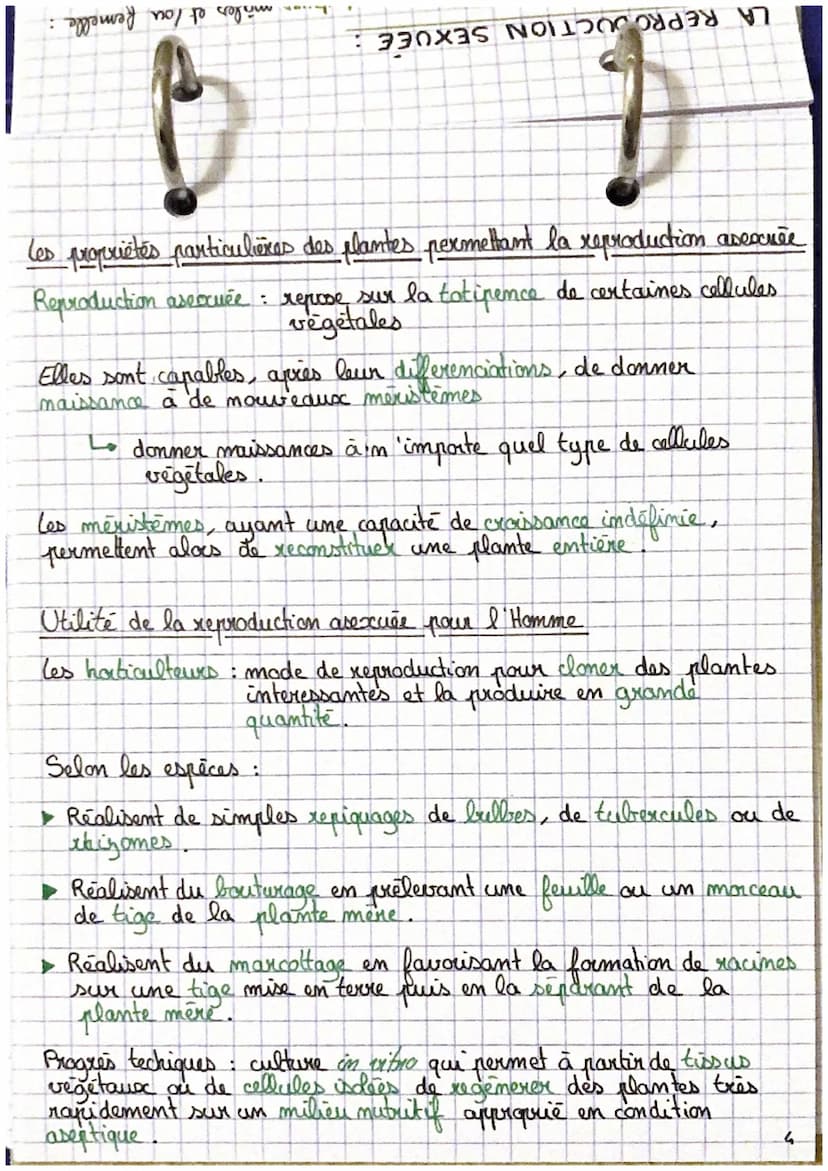 LA REPRODUCTION SEXUÉE :
mâles et / ou femelle :
Les propriétés particulières des plantes permettant la reproduction asexuée
Reproduction asexuée : repose sur la totipence de certaines cellules
végétales
Elles sont capables, après leur différenciations, de donner
naissance à de nouveaux méristèmes
↳ donner naissances à n'importe quel type de cellules
végétales.
Les méristèmes, ayant une capacité de croissance indéfinie,
permettent alors de reconstituer une plante entière.
Utilité de la reproduction asexuée pour l'Homme
Les horticulteurs : mode de reproduction pour cloner des plantes
interessantes et la produire en grande
quantité.
Selon les espèces :
▸ Réalisent de simples repiquages de bulbes, de tubercules ou de
rhizomes.
▸ Réalisent du bouturage en prélevant une feuille ou un morceau
de tige de la plante mère.
▸ Réalisent du marcottage en favorisant la formation de racines
sur une tige mise en terre puis en la séparant de la
plante mère.
Progrès techiques : culture in vitro qui permet à partir de tissus
végétaux ou de cellules isolées de regénerer des plantes très
rapidement sur un milieu nutritif approprié en condition
aseptique.
4